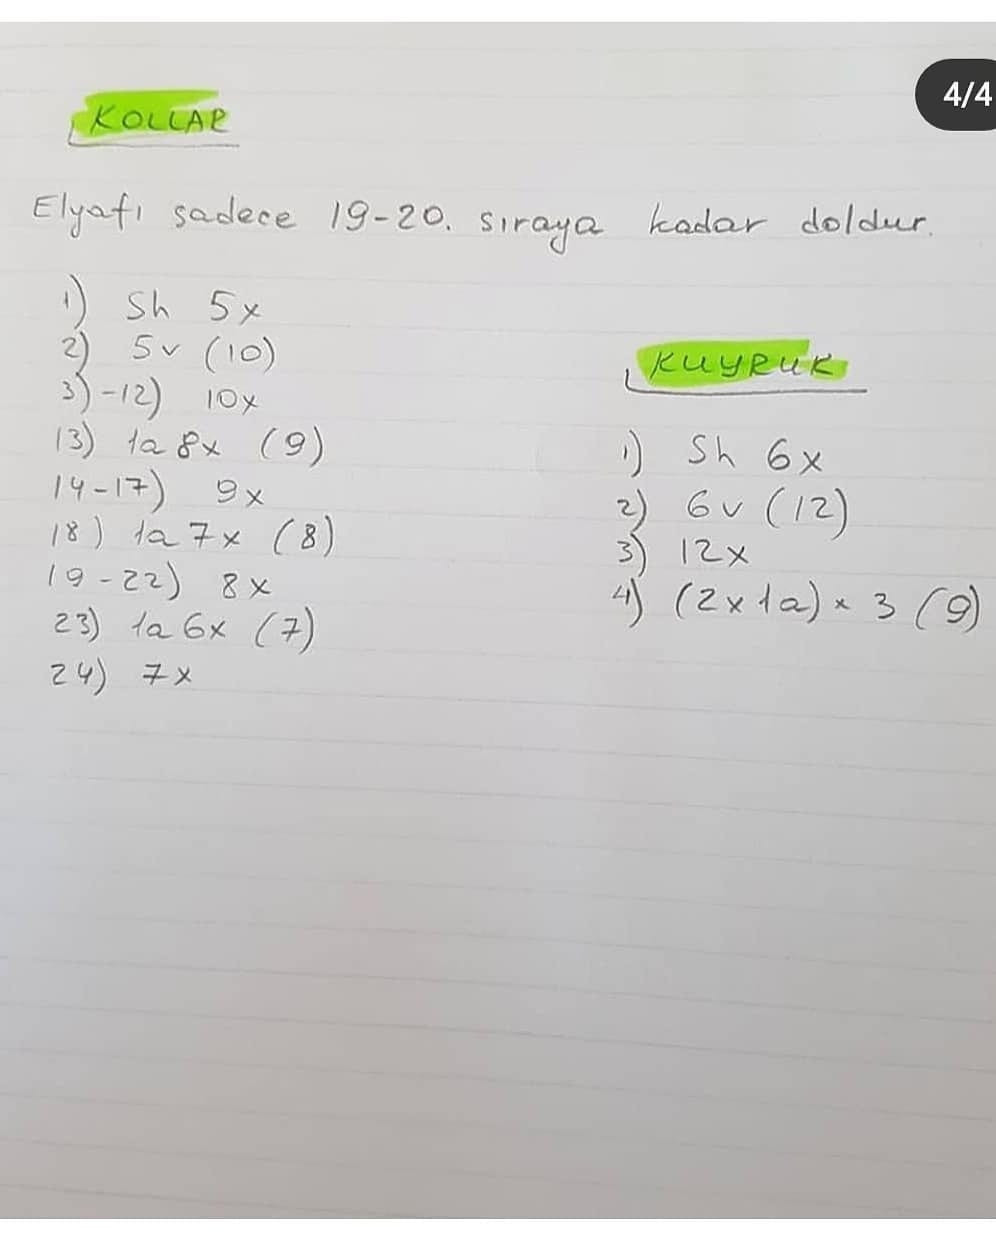 4/4
KOLLAR
Elyafı sadece 19-20. sıraya kadar doldur.
1) Sh 5x
2) 5v (10)
3)-12) 10x
13) 1a 8x (9)
14-17) 9x
18) 1a 7x (8)
19-22) 8x
23) 1a 6x (7)
24) 7x
KUYRUK
1) Sh 6x
2) 6v (12)
3) 12x
4) (2x1a)x3 (9)